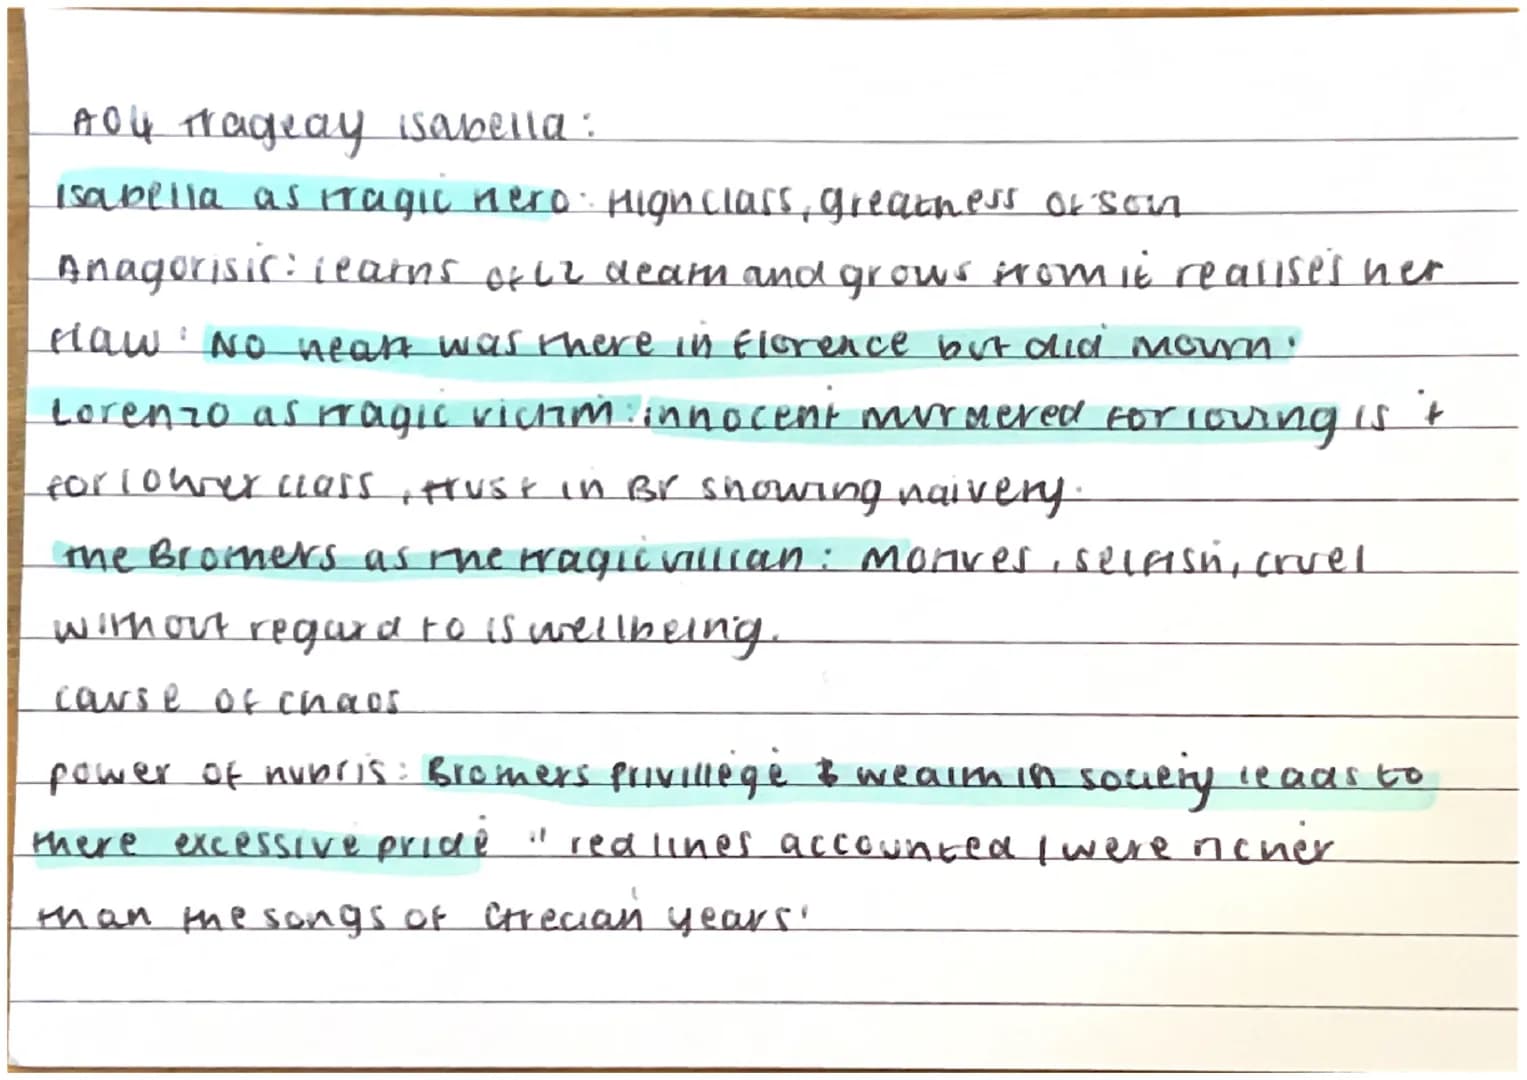 AO4 Tragedy isabella:
isabella as tragic hero: High class, greatness of soul
Anagorisis: learns of Lz death and grows from it realises her
flaw: 'No heart was there in Florence but did mourn'
Lorenzo as tragic victim: innocent murdered for loving is +
for lower class, trust in Br showing naivery.
the Brothers as the tragic villian: Motives, selfish, cruel
without regard to is wellbeing.
cause of chaos
power of hubris: Brothers privillege & wealth in society leads to
there excessive pride "red lines accounted / were richer
than the songs of Grecian years'